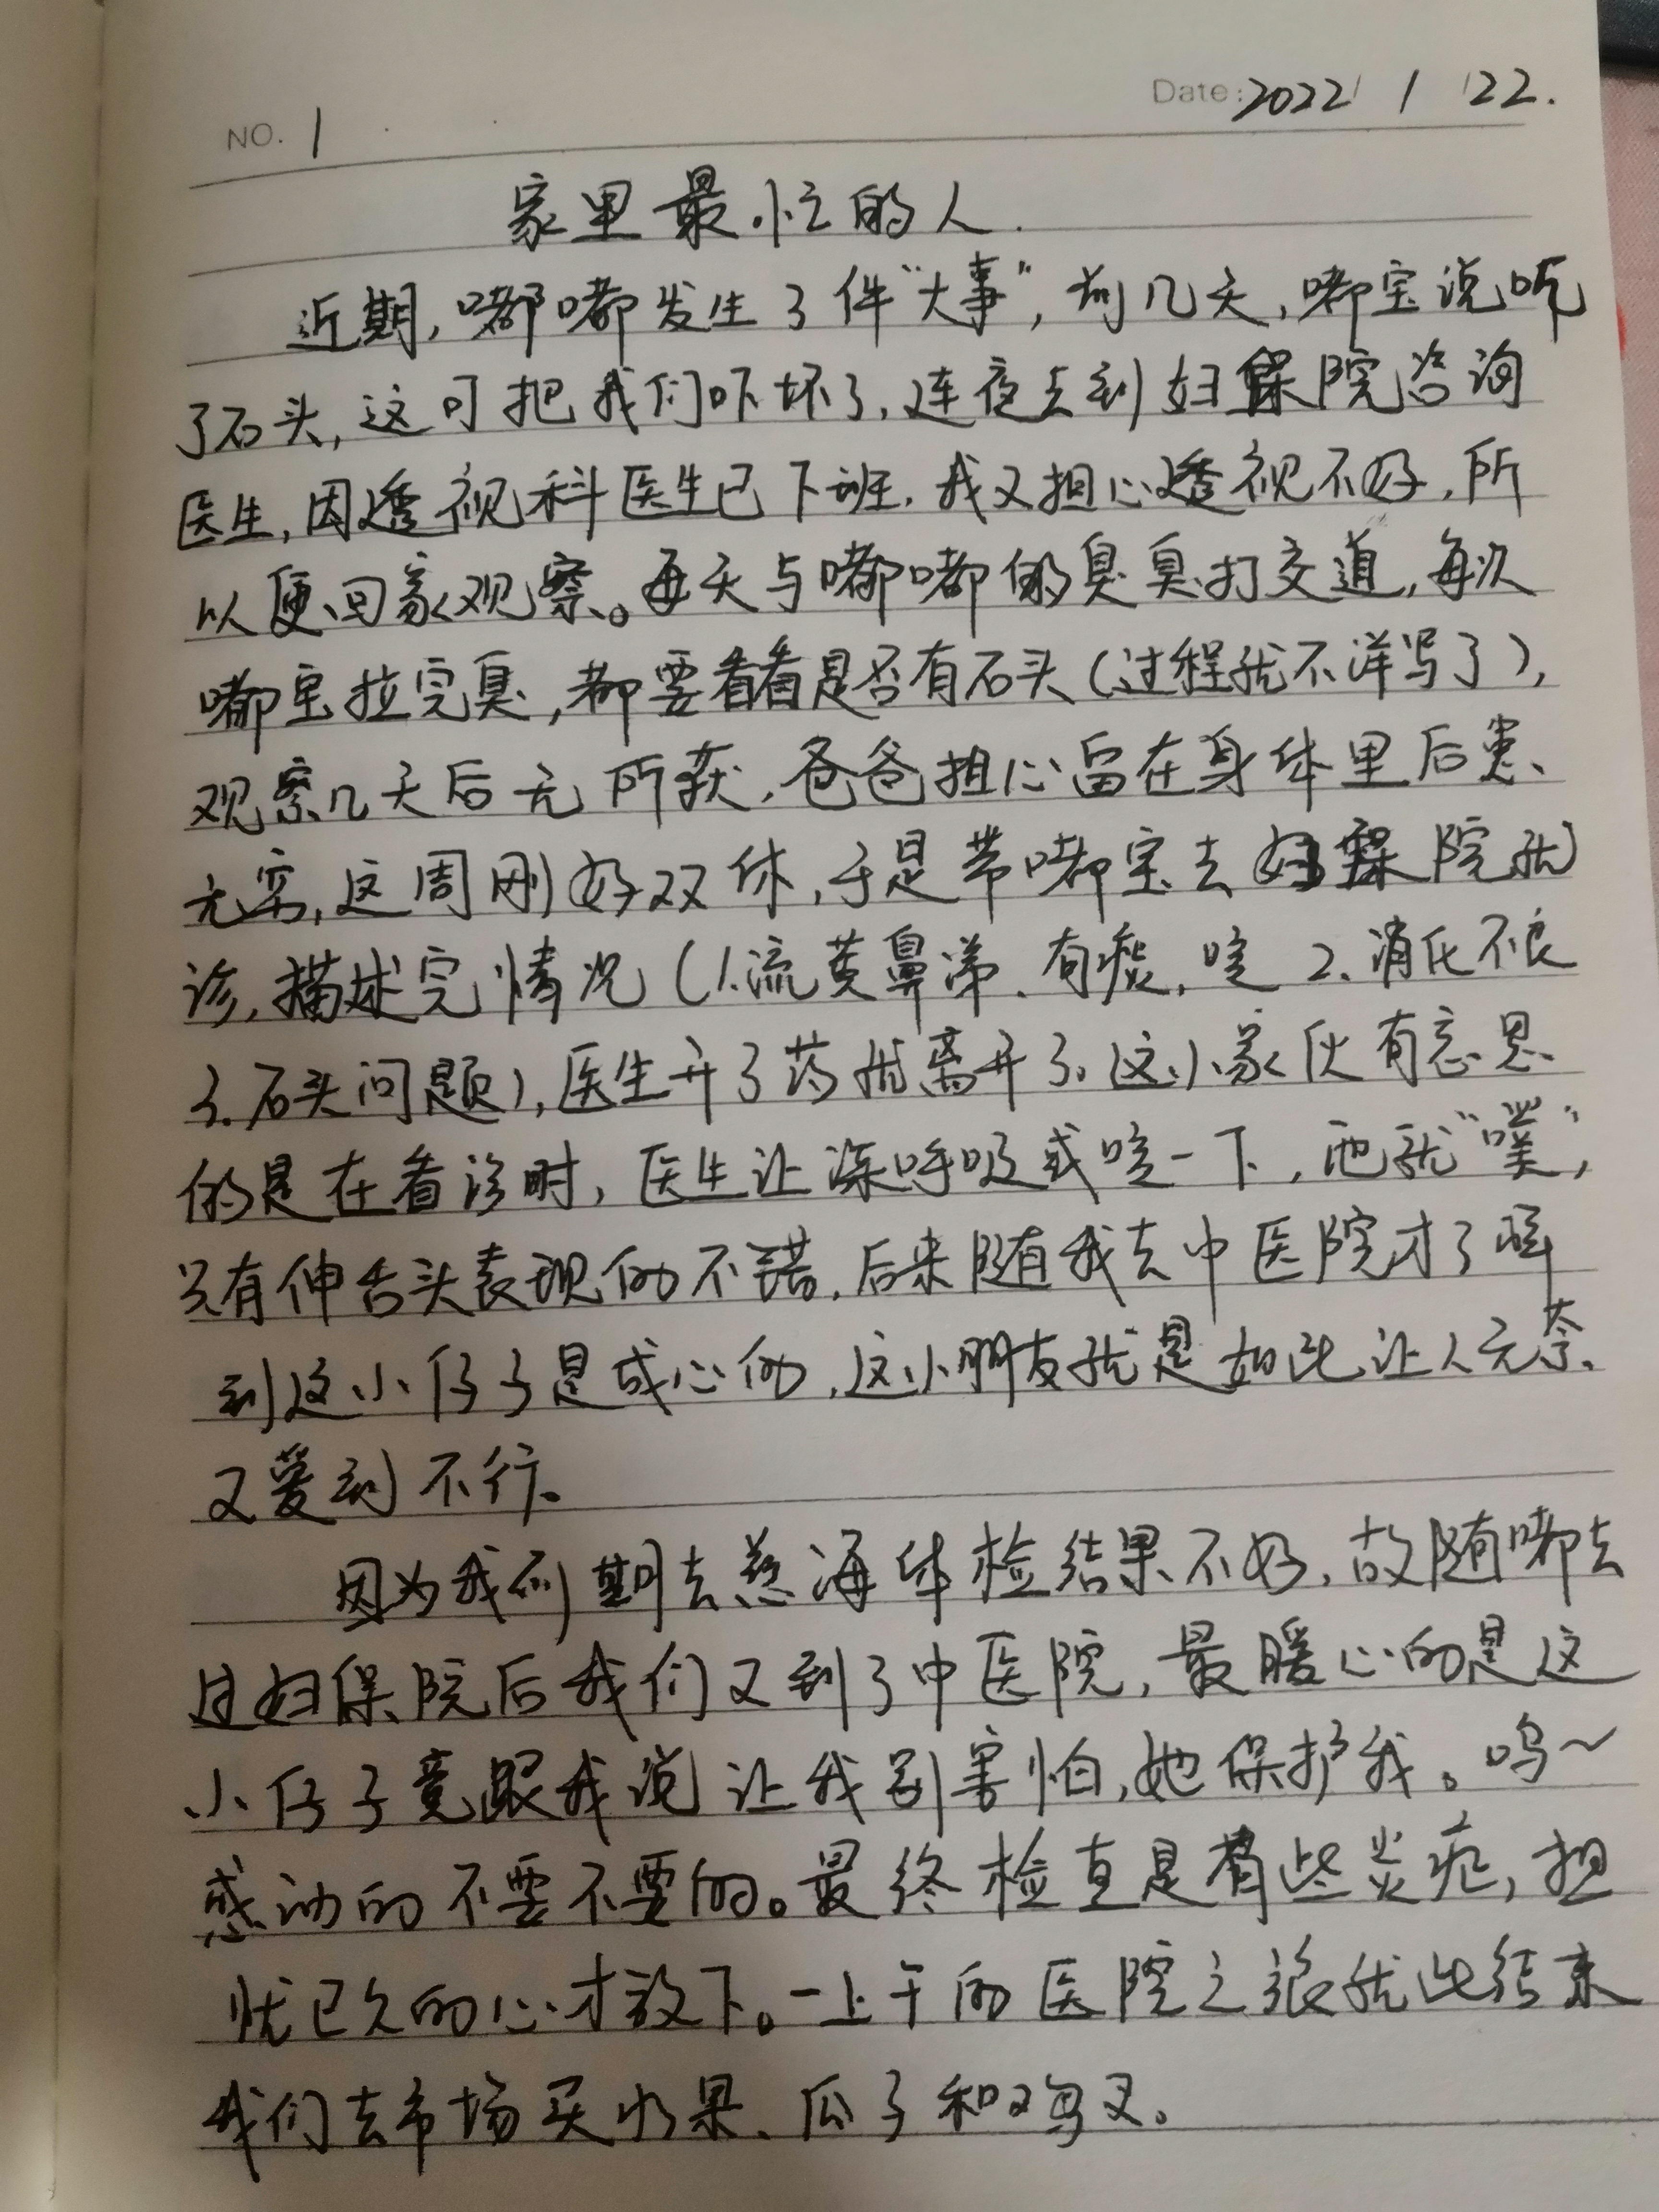 NO. 1
Date: 2022 / 1 / 22.
家里最忙的人.
近期,嘟嘟发生了件“大事”,前几天,嘟宝说吃
了石头,这可把我们吓坏了,连夜去到妇保院咨询
医生,因透视科医生已下班,我又担心透视不好,所
以便回家观察。每天与嘟嘟的臭臭打交道,每次
嘟宝拉完臭,都要看看是否有石头(过程就不详写了),
观察几天后无所获,爸爸担心留在身体里后患、
无穷,这周刚好双休,于是带嘟宝去妇保院就
诊,描述完情况(1.流黄鼻涕、有痰,咳 2.消化不良
3.石头问题),医生开了药就离开了。这小家伙有意思
的是在看诊时,医生让深呼吸或咳一下,他就“噗”,
只有伸舌头表现的不错,后来随我去中医院才了解
到这小仔子是成心的,这小朋友就是如此让人无奈、
又爱到不行。
因为我前期去慈海体检结果不好,故随嘟去
过妇保院后我们又到了中医院,最暖心的是这
小仔子竟跟我说让我别害怕,她保护我。呜~
感动的不要不要的。最终检查是有些炎症,担
忧已久的心才放下。一上午的医院之旅就此结束
我们去市场买水果、瓜子和鸡叉。